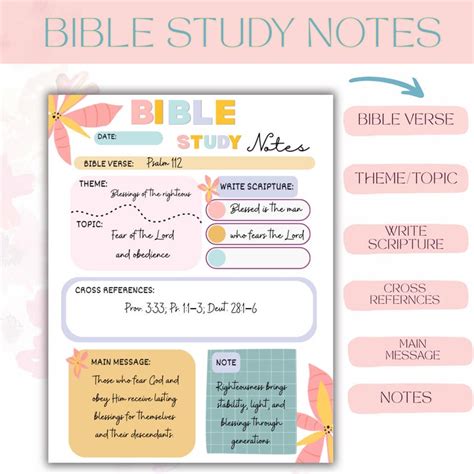 BIBLE STUDY NOTES
BIBLE
STUDY Notes
DATE:
BIBLE VERSE: Psalm 112
THEME:
Blessings of the righteous
TOPIC:
Fear of the Lord
and obedience
WRITE SCRIPTURE:
Blessed is the man
who fears the Lord
CROSS REFERENCES:
Prov. 3:33; Ps. 1:1–3; Deut. 28:1–6
MAIN MESSAGE:
Those who fear God and
obey Him receive lasting
blessings for themselves
and their descendants.
NOTE
Righteousness brings
stability, light, and
blessings through
generations.
BIBLE VERSE
THEME/TOPIC
WRITE
SCRIPTURE
CROSS
REFERNCES
MAIN
MESSAGE
NOTES